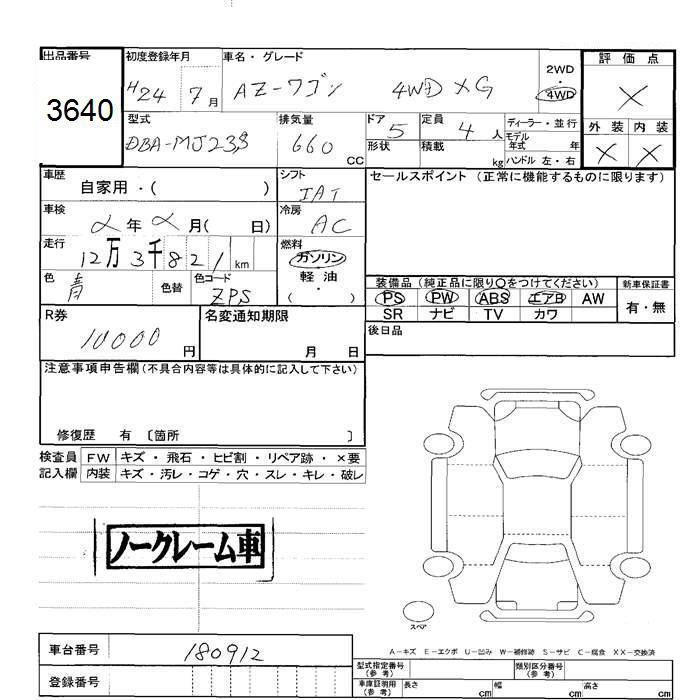 出品番号 初度登録年月 車名・グレード 2WD ・ 4WD 評価点
3640 H24 7月 AZ-ワゴン 4WD XG ×
型式 排気量 ドア 定員 ディーラー・並行 外装 内装
DBA-MJ23S 660 CC 5 4人 モデル年式 年 × ×
形状 積載 kg ハンドル 左・右
車歴 シフト セールスポイント (正常に機能するものに限ります)
自家用・( ) IAT
車検 冷房
年 月( 日) AC
走行 燃料
12万3千821km ガソリン
色 色替 色コード 軽油
青 ZPS ・ ( )
装備品(純正品に限り○をつけてください) 新車保証書
PS PW ABS エアB AW 有・無
SR ナビ TV カワ
R券 名変通知期限 後日品
10000円 月 日
注意事項申告欄(不具合内容等は具体的に記入して下さい)
修復歴 有 〔箇所 〕
検査員 FW キズ・飛石・ヒビ割・リペア跡・×要
記入欄 内装 キズ・汚レ・コゲ・穴・スレ・キレ・破レ
ノークレーム車
スペア
A-キズ E-エクボ U-凹み W-補修跡 S-サビ C-腐食 XX-交換済
車台番号 180912
登録番号
型式指定番号(参考) 類別区分番号(参考)
車庫証明用(参考) 長さ cm 幅 cm 高さ cm